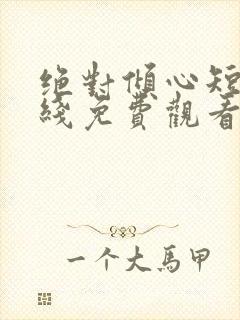 絕對傾心短
綫免費觀看
一个大馬甲